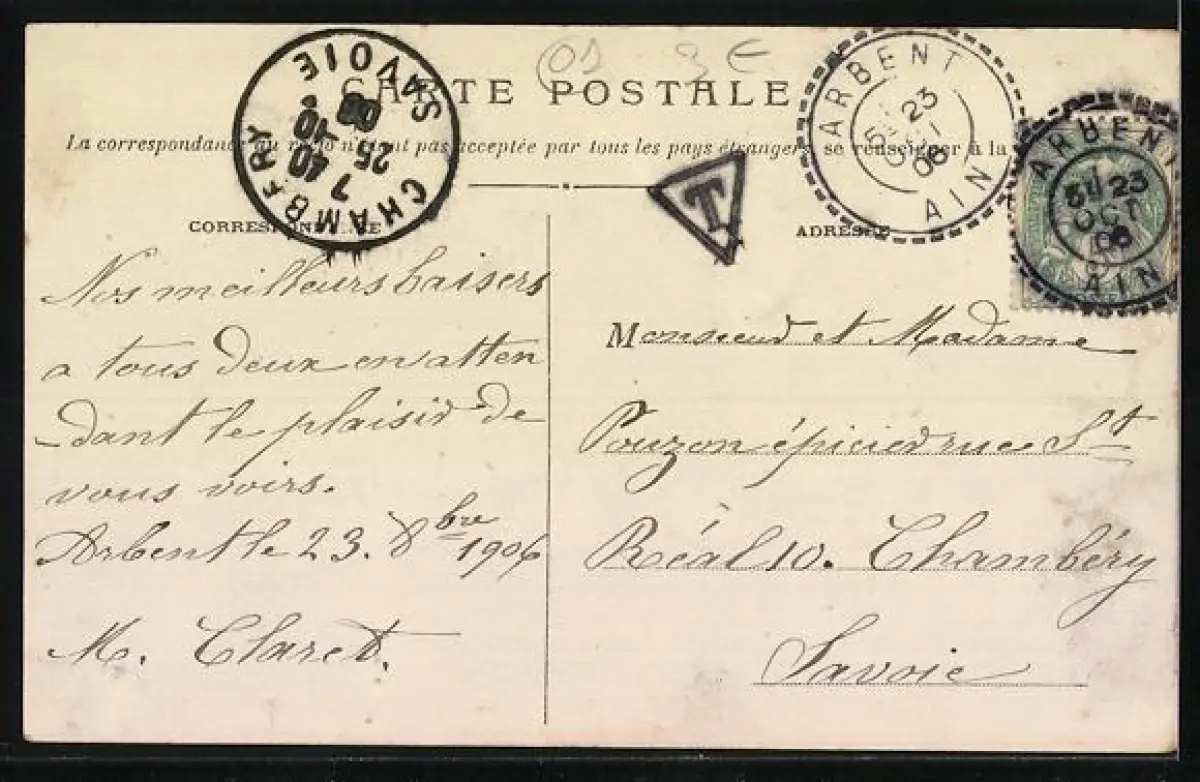 CARTE POSTALE
La correspondance au recto n'étant pas acceptée par tous les pays étrangers, se renseigner à la
CORRESPONDANCE
ADRESSE
Nos meilleurs baisers
a tous deux en atten
dant le plaisir de
vous voirs.
Arbent le 23. 8bre 1906
M. Claret.
Monsieur et Madame
Pouzon épicier rue St
Réal 10. Chambéry
Savoie
CHAMBERY
7 40
25 10
06
SAVOIE
T
ARBENT
23
OCT
06
AIN
ARBENT
23
OCT
06
AIN
3 €